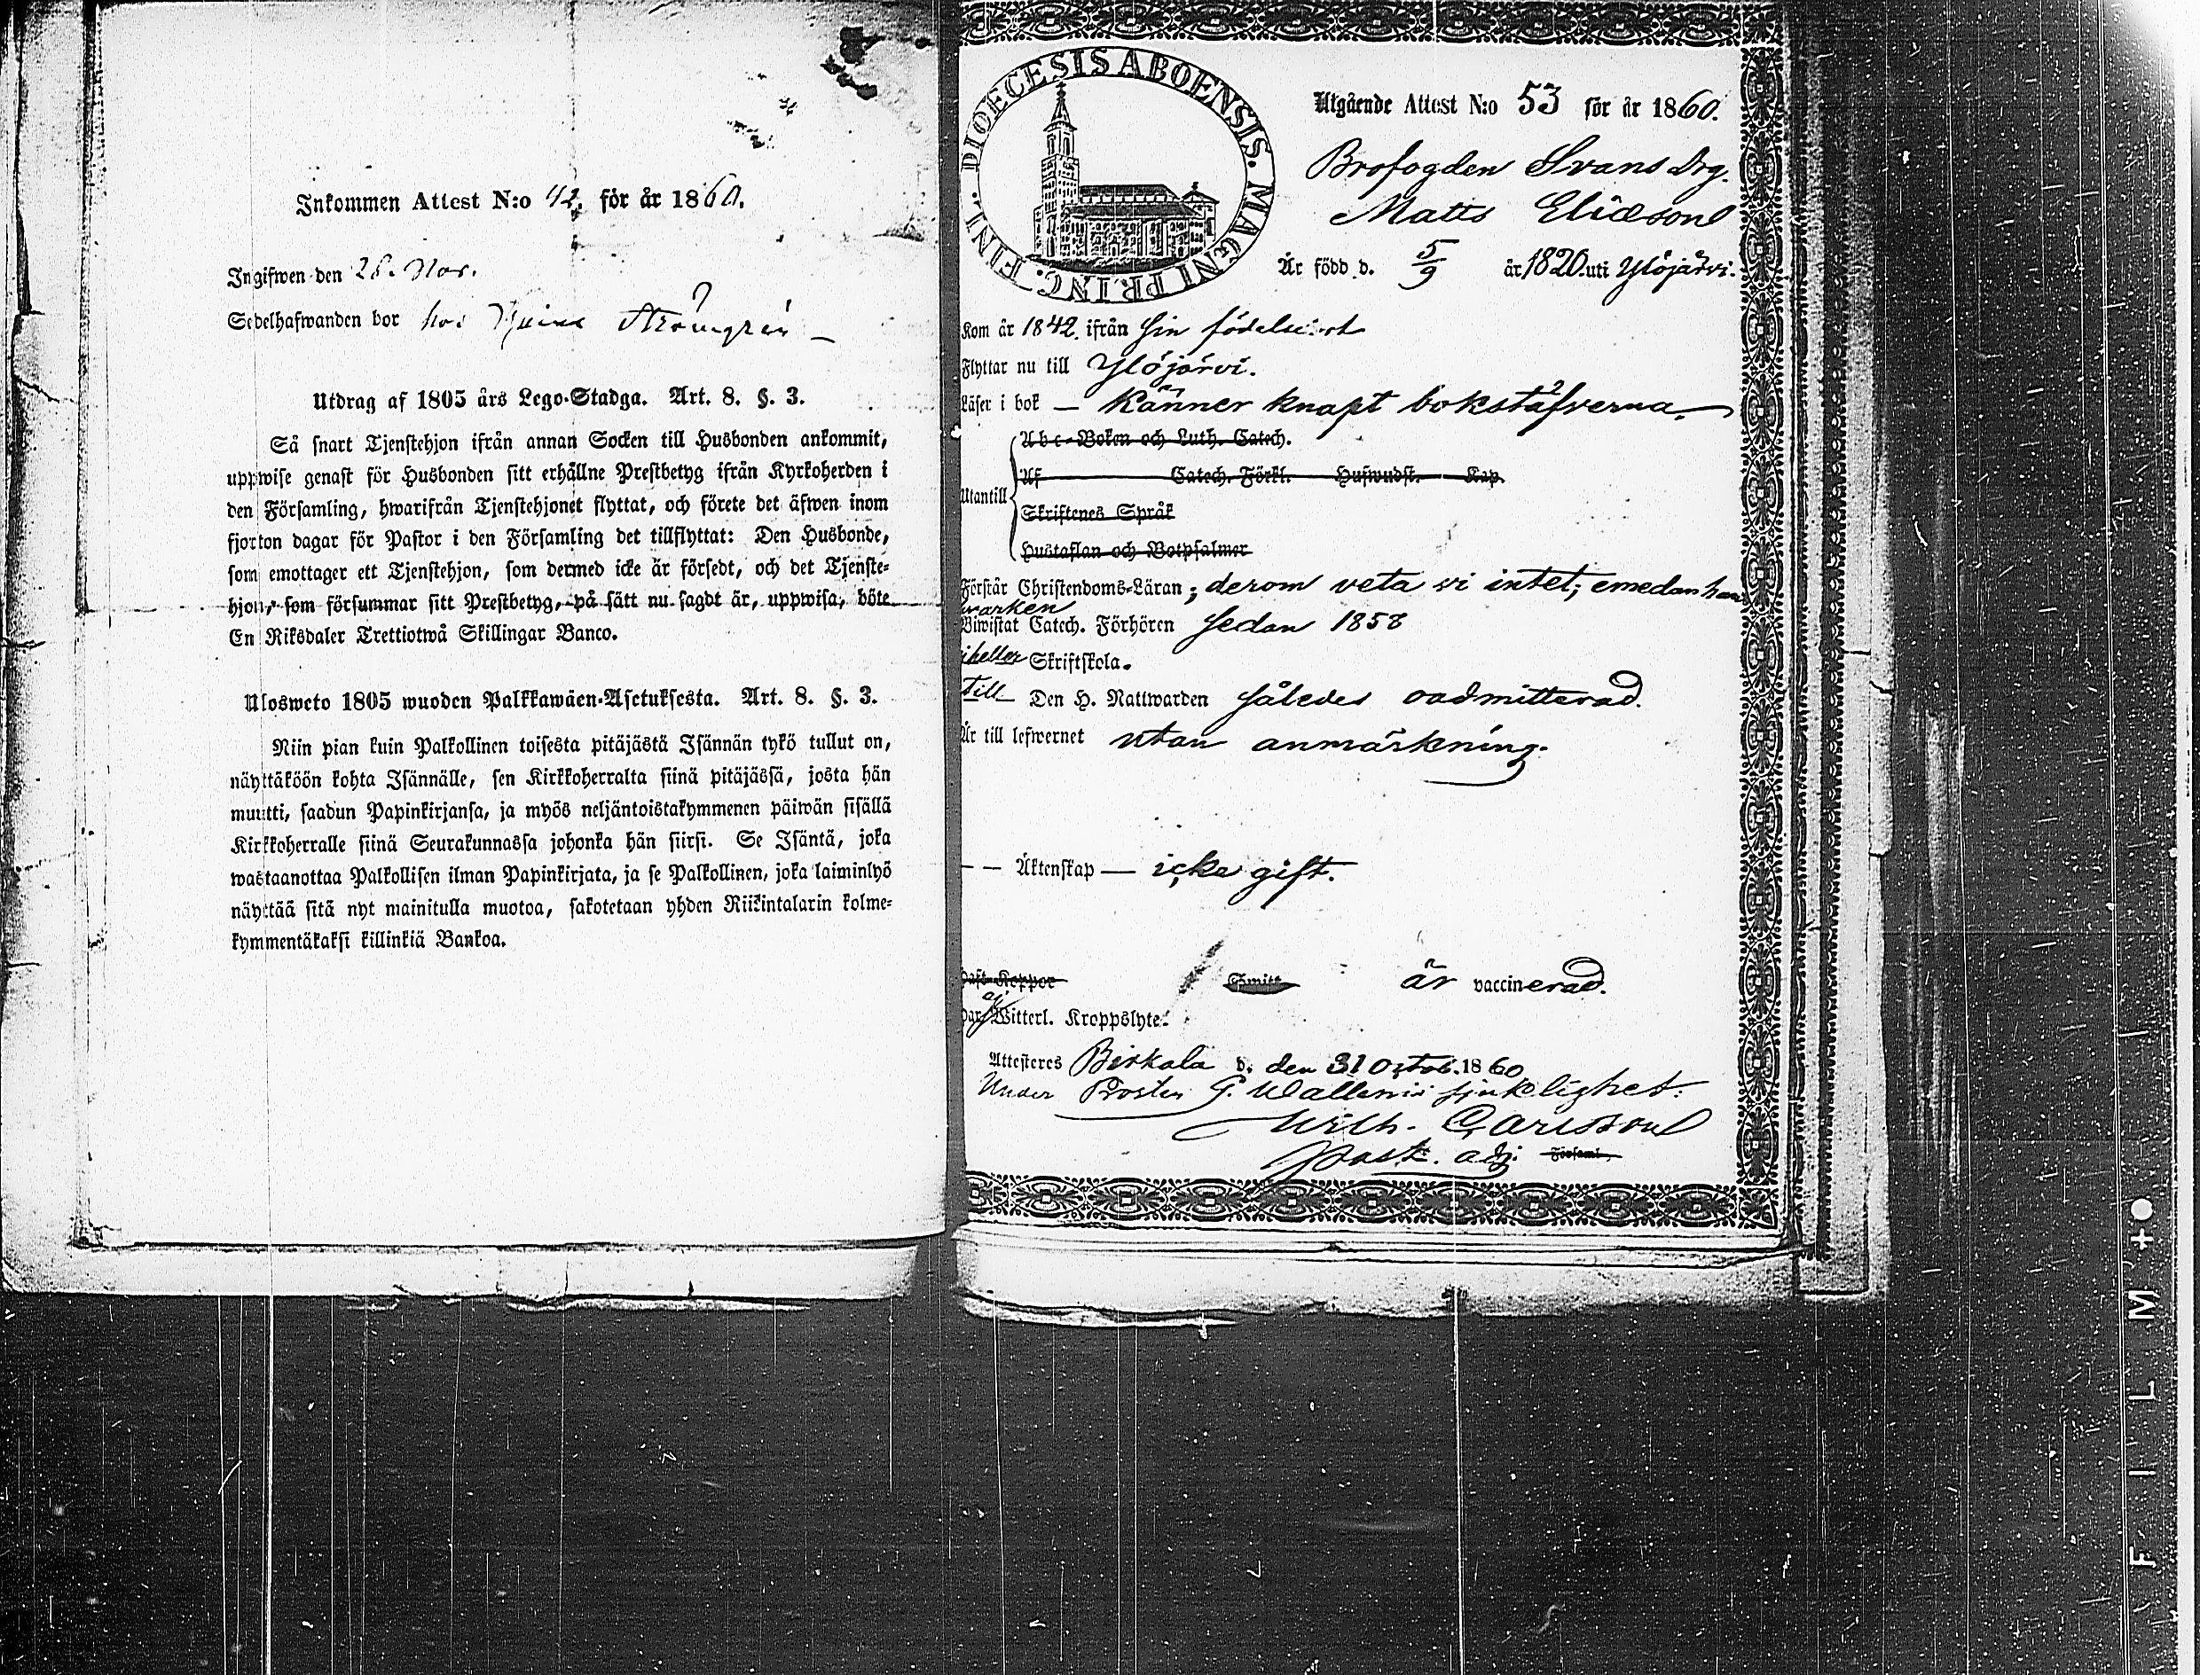 Inkommen Attest N:o 42. för år 1860.
Ingifwen den 26. Nov.
Sedelhafwanden bor hos
Utdrag af 1805 års Lego-Stadga. Art. 8. §. 3.
Så snart Tjenstehjon ifrån annan Socken till Husbonden ankommit,
uppwise genast för Husbonden sitt erhållne Prestbetyg ifrån Kyrkoherden i
den Församling, hwarifrån Tjenstehjonet flyttat, och förete det äfwen inom
fjorton dagar för Pastor i den Församling det tillflyttat: Den Husbonde,
som emottager ett Tjenstehjon, som dermed icke är försedt, och det Tjenste-
hjon, som försummar sitt Prestbetyg, på sätt nu sagdt är, uppwisa, böte
En Riksdaler Trettiotwå Skillingar Banco.
Ulosweto 1805 wuoden Palkkawäen-Asetuksesta. Art. 8. §. 3.
Niin pian kuin Palkollinen toisesta pitäjästä Isännän tykö tullut on,
näyttäköön kohta Isännälle, sen Kirkkoherralta siinä pitäjässä, josta hän
muutti, saadun Papinkirjansa, ja myös neljäntoistakymmenen päiwän sisällä
Kirkkoherralle siinä Seurakunnassa johonka hän siirsi. Se Isäntä, joka
wastaanottaa Palkollisen ilman Papinkirjata, ja se Palkollinen, joka laiminlyö
näyttää sitä nyt mainitulla muotoa, sakotetaan yhden Riikintalarin kolme-
kymmentäkaksi killinkiä Bankoa.
DIOECESIS ABOENSIS. MAGNI PRINC. FINL.
Utgående Attest N:o 53 för år 1860.
Brofogden Svans Drg.
Matts Eliæson
Är född d. 5/9 år 1820 uti Ylöjärvi.
Kom år 1842 ifrån sin födelseort
Flyttar nu till Ylöjärvi.
Läser i bok — känner knapt bokstäfverna.
Abc-Boken och Luth. Catech.
Af Catech. Förkl. Hufwudst. Kap.
Utantill
Skriftenes Språk
Hustaflan och Botpsalmer
Förstår Christendoms-Läran; derom veta vi intet; emedan han
varken
Biwistat Catech. Förhören sedan 1858
eller Skriftskola.
Till Den H. Nattwarden således oadmitterad.
Är till lefwernet utan anmärkning.
— — Äktenskap — icke gift.
Haft Koppor Smitt är vaccinerad.
ej
Har Witterl. Kroppslyte.
Attesteres Birkala d. den 31 Octob. 1860
Under Prosten G. Wallenii sjuklighet:
Wilh. Carlsson
Past. adj. Församl.
FILM